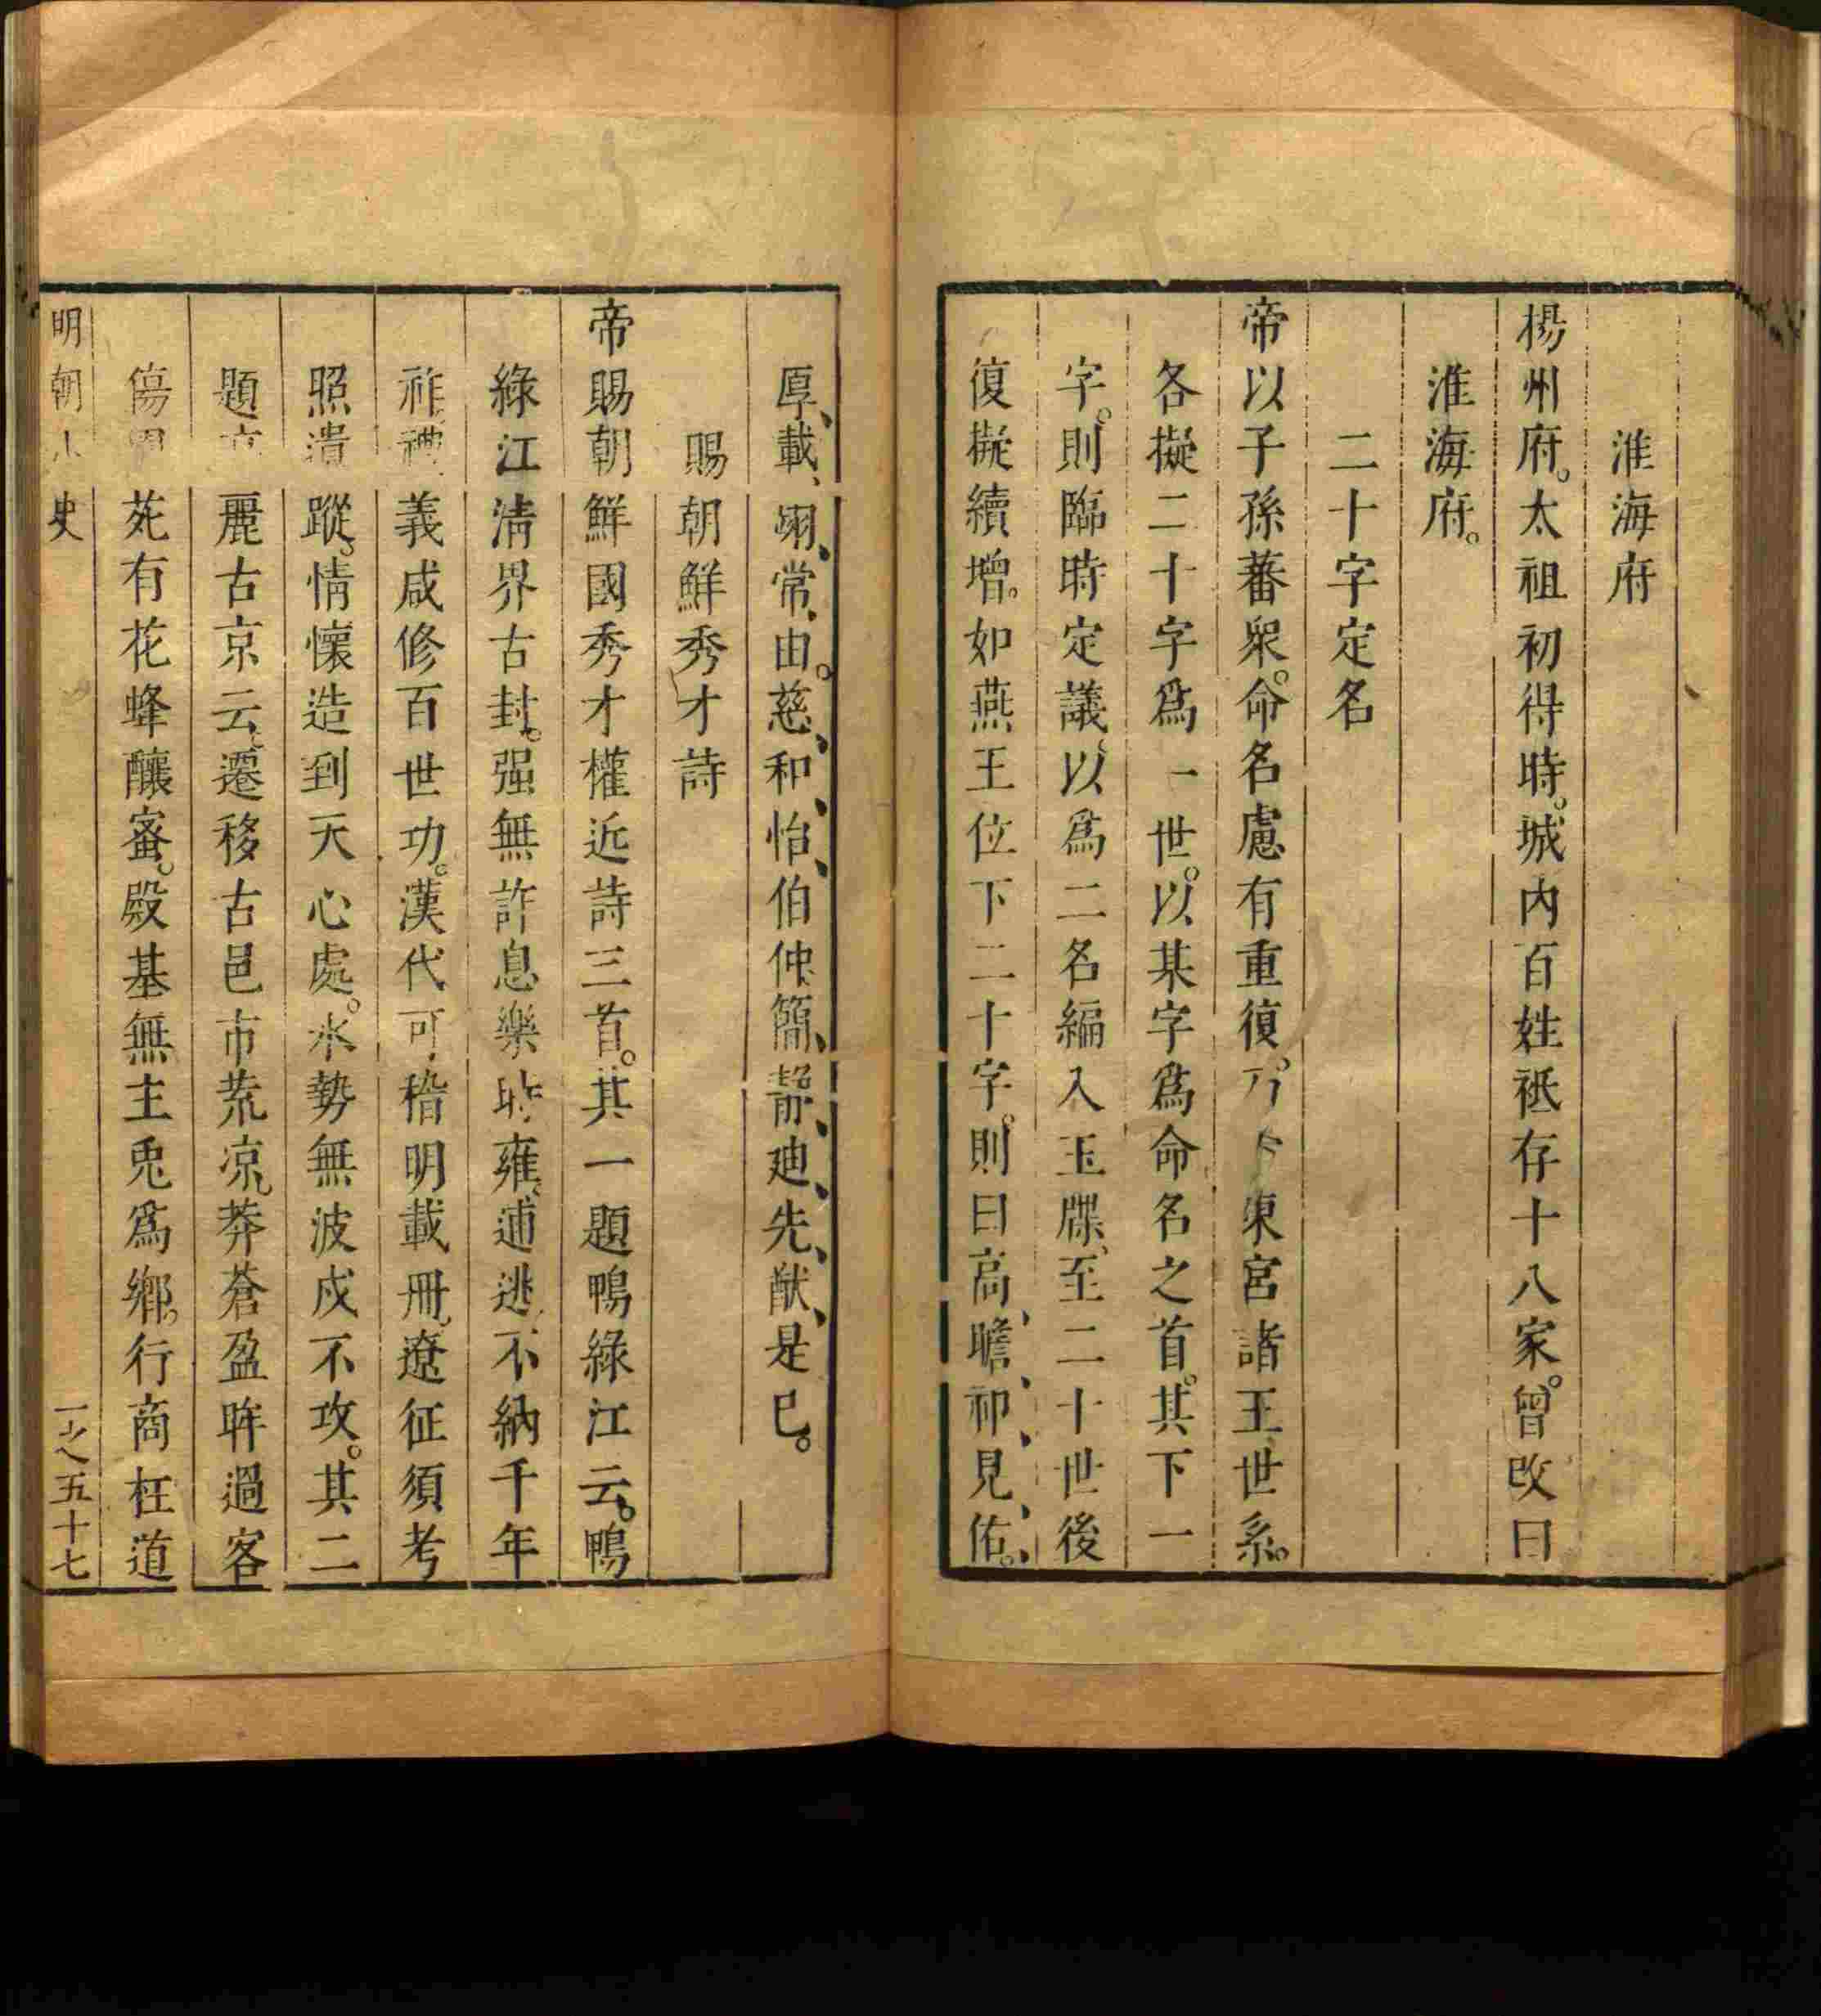 淮海府
揚州府。太祖初得時。城內百姓祇存十八家。曾改曰
淮海府。
二十字定名
帝以子孫蕃衆。命名慮有重復。乃東宮諸王世系。
各擬二十字爲一世。以某字爲命名之首。其下一
字。則臨時定議、以爲二名編入玉牒、至二十世後
復擬續增。如燕王位下二十字。則曰高、瞻、祁、見、佑。
厚、載、翊、常、由。慈、和、怡、伯仲、簡、靜、廸、先、猷、是已。
賜朝鮮秀才詩
帝賜朝鮮國秀才權近詩三首。其一題鴨綠江云。鴨
綠江淸界古封。强無詐息樂時雍。逋逃不納千年
祚、禮義咸修百世功。漢代可稽明載冊、遼征須考
照遺蹤、情懷造到天心處。水勢無波戍不攻。其二
題高麗古京云、遷移古邑市荒凉、莽蒼盈眸過客
傷。園苑有花蜂釀蜜。殿基無主兎爲鄕。行商枉道
明朝小史
一之五十七